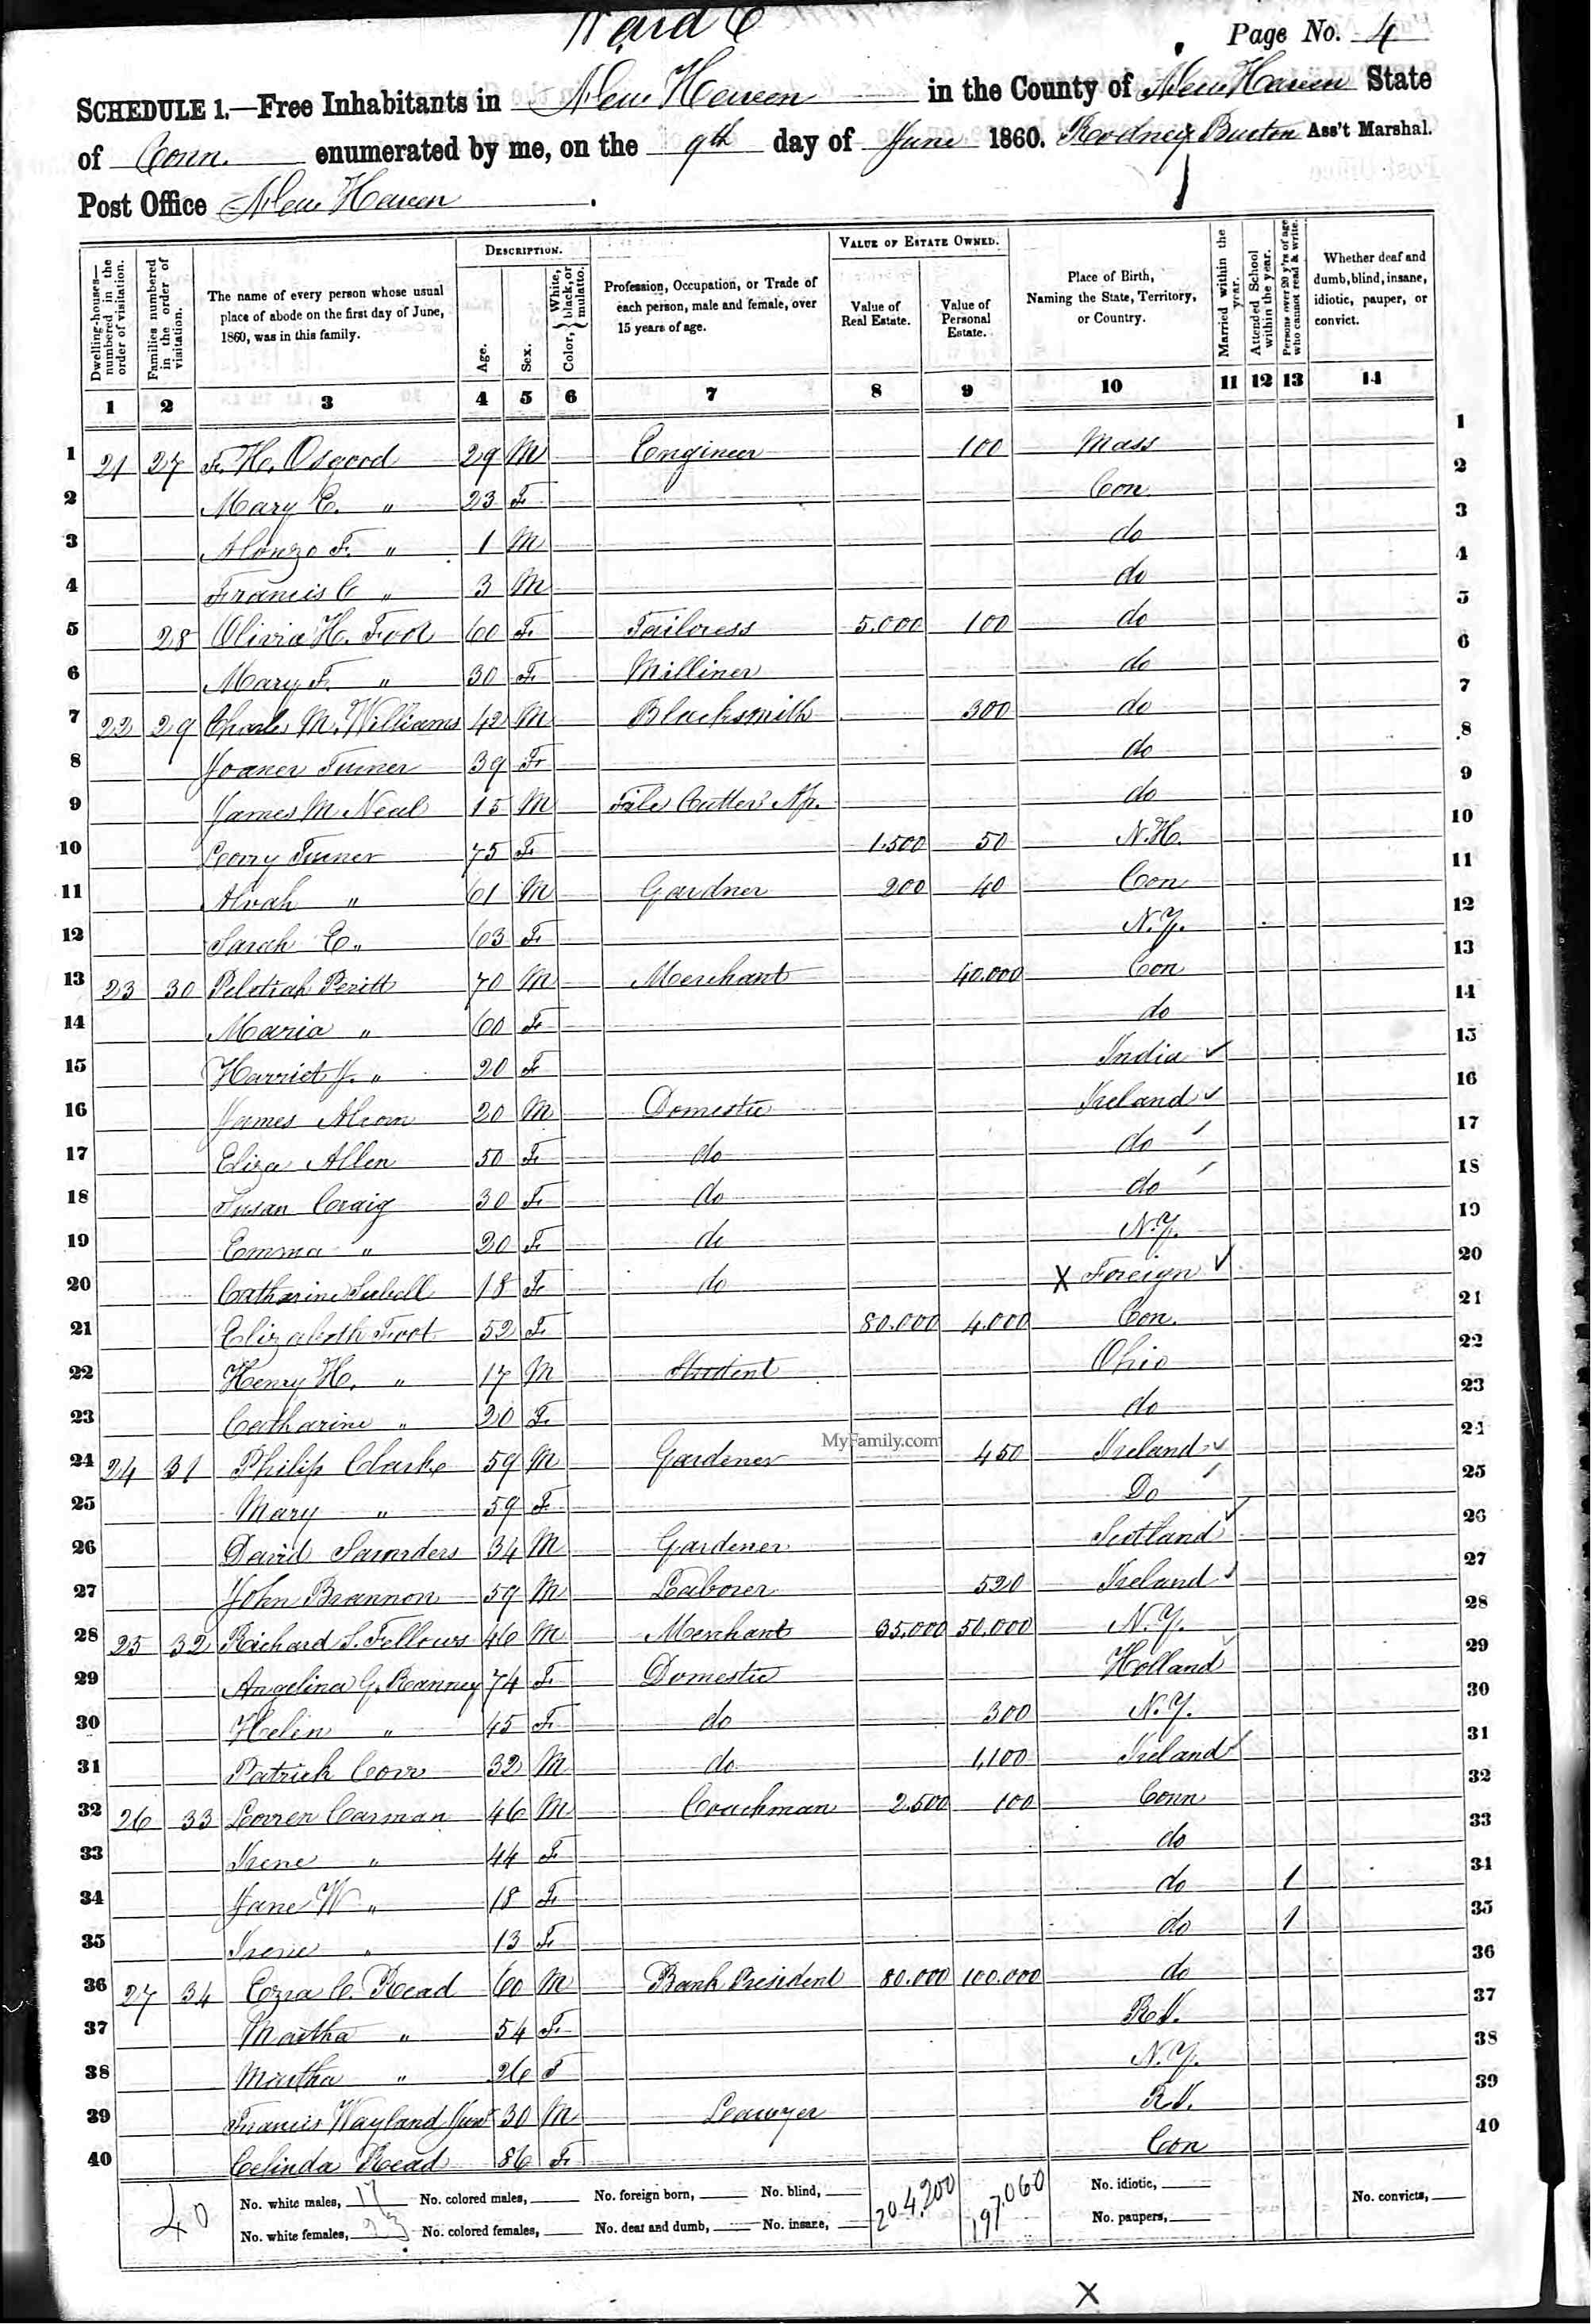 Ward 6
Page No. 4
SCHEDULE 1.—Free Inhabitants in New Haven in the County of New Haven State
of Conn. enumerated by me, on the 9th day of June 1860. Rodney Burton Ass't Marshal.
Post Office New Haven.
Dwelling-houses—numbered in the order of visitation.
Families numbered in the order of visitation.
The name of every person whose usual place of abode on the first day of June, 1860, was in this family.
DESCRIPTION.
Age.
Sex.
Color, { White, black, or mulatto.
Profession, Occupation, or Trade of each person, male and female, over 15 years of age.
VALUE OF ESTATE OWNED.
Value of Real Estate.
Value of Personal Estate.
Place of Birth, Naming the State, Territory, or Country.
Married within the year.
Attended School within the year.
Persons over 20 y'rs of age who cannot read & write.
Whether deaf and dumb, blind, insane, idiotic, pauper, or convict.
1 2 3 4 5 6 7 8 9 10 11 12 13 14
1 21 27 F. H. Osgood 29 M Engineer 100 Mass 1
2 Mary E. " 23 F Con 2
3 Alonzo F. " 1 M do 3
4 Francis C " 3 M do 4
5 28 Olivia H. Foot 60 F Tailoress 5.000 100 do 5
6 Mary F. " 30 F Milliner do 6
7 22 29 Charles M. Williams 42 M Blacksmith 300 do 7
8 Joaner Turner 39 F do 8
9 James M Neal 15 M File Cutter Ap. do 9
10 Turner 75 F 1.500 50 N.H. 10
11 Alvah " 61 M Gardner 200 40 Con 11
12 Sarah E " 63 F N.Y. 12
13 23 30 Peletiah Peritt 70 M Merchant 40.000 Con 13
14 Maria " 60 F do 14
15 Harriet J. " 20 F India ✓ 15
16 James 20 M Domestic Ireland ✓ 16
17 Eliza Allen 50 F do do 17
18 Susan Craig 30 F do do 18
19 Emma " 20 F do N.Y. 19
20 Catharine 18 F do X Foreign ✓ 20
21 Elizabeth Foot 52 F 80.000 4.000 Con. 21
22 Henry H. " 17 M Student Ohio 22
23 Catharine " 20 F do 23
MyFamily.com
24 24 31 Philip Clarke 59 M Gardener 450 Ireland ✓ 24
25 Mary " 59 F Do 25
26 David Saunders 34 M Gardener Scotland ✓ 26
27 John Brannon 59 M Laborer 520 Ireland ✓ 27
28 25 32 Richard S. Fellows 46 M Merchant 35.000 50.000 N.Y. 28
29 Angelina G. Ranney 74 F Domestic Holland 29
30 Helin " 45 F do 300 N.Y. 30
31 Patrick Corr 32 M do 1,100 Ireland ✓ 31
32 26 33 Loren Carman 46 M Coachman 2.500 100 Conn 32
33 Irene " 44 F do 33
34 Jane W " 18 F do 1 34
35 Irene " 13 F do 1 35
36 27 34 Ezra C. Read 60 M Bank President 80.000 100.000 do 36
37 Martha " 54 F R.I. 37
38 Martha " 26 F N.Y. 38
39 Francis Wayland Junr 30 M Lawyer R.I. 39
40 Celinda Read 86 F Con 40
40
No. white males, 17 No. colored males, No. foreign born, No. blind, 204,200 197,060 No. idiotic, No. convicts,
No. white females, 23 No. colored females, No. deaf and dumb, No. insane, No. paupers,
X